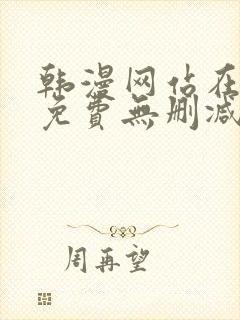 韩漫网站在
免費無删减
周再望